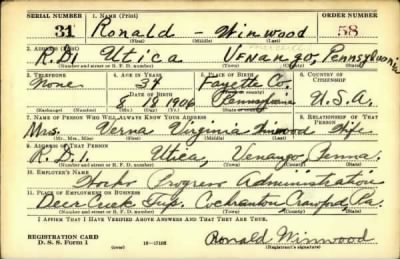 SERIAL NUMBER 1. NAME (Print) ORDER NUMBER
31 Ronald - Winwood 58
(First) (Middle) (Last)
2. ADDRESS (Print)
R.D.1 Utica Venango, Pennsylvania
(Number and street or R. F. D. number) (Town) (County) (State)
3. TELEPHONE 4. AGE IN YEARS 5. PLACE OF BIRTH 6. COUNTRY OF CITIZENSHIP
None 34 Fayette Co.
DATE OF BIRTH (Town or county)
8 /8 1906 Pennsylvania U.S.A.
(Exchange) (Number) (Mo.) (Day) (Yr.) (State or country)
7. NAME OF PERSON WHO WILL ALWAYS KNOW YOUR ADDRESS 8. RELATIONSHIP OF THAT PERSON
Mrs. Verna Virginia Winwood Wife
(Mr., Mrs., Miss) (First) (Middle) (Last)
9. ADDRESS OF THAT PERSON
R.D.1 Utica, Venango, Penna.
(Number and street or R. F. D. number) (Town) (County) (State)
10. EMPLOYER'S NAME
Works Progress Administration
11. PLACE OF EMPLOYMENT OR BUSINESS
Deer Creek Twp. Cochranton Crawford Pa.
(Number and street or R. F. D. number) (Town) (County) (State)
I AFFIRM THAT I HAVE VERIFIED ABOVE ANSWERS AND THAT THEY ARE TRUE.
REGISTRATION CARD
D. S. S. Form 1 16-17105 Ronald Winwood
(Registrant's signature)